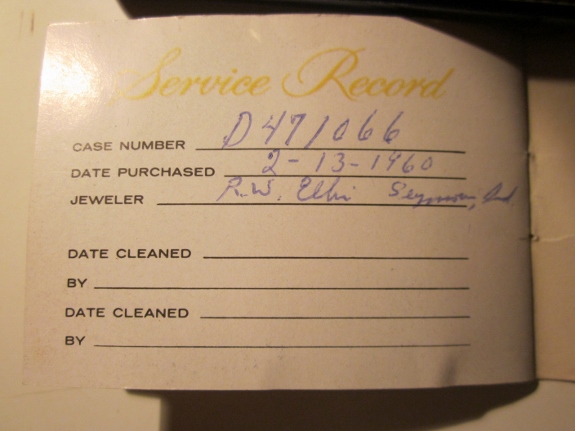 Service Record
CASE NUMBER D471066
DATE PURCHASED 2-13-1960
JEWELER R.W. Seymour, Ind
DATE CLEANED
BY
DATE CLEANED
BY